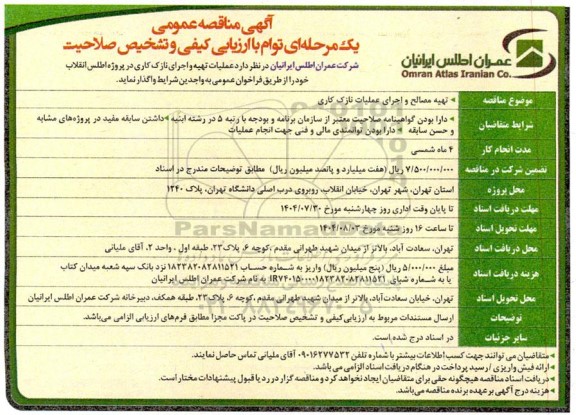 آگهی مناقصه عمومی
یک مرحله‌ای توام با ارزیابی کیفی و تشخیص صلاحیت
عمران اطلس ایرانیان
Omran Atlas Iranian Co.
شرکت عمران اطلس ایرانیان در نظر دارد عملیات تهیه و اجرای نازک کاری در پروژه اطلس انقلاب
خود را از طریق فراخوان عمومی به واجدین شرایط واگذار نماید.
موضوع مناقصه تهیه مصالح و اجرای عملیات نازک کاری
شرایط متقاضیان دارا بودن گواهینامه صلاحیت معتبر از سازمان برنامه و بودجه با رتبه ۵ در رشته ابنیه داشتن سابقه مفید در پروژه‌های مشابه
و حسن سابقه دارا بودن توانمندی مالی و فنی جهت انجام عملیات
مدت انجام کار ۴ ماه شمسی
تضمین شرکت در مناقصه ۷/۵۰۰/۰۰۰/۰۰۰ ریال (هفت میلیارد و پانصد میلیون ریال) مطابق توضیحات مندرج در اسناد
محل پروژه استان تهران، شهر تهران، خیابان انقلاب، روبروی درب اصلی دانشگاه تهران، پلاک ۱۲۴۰
مهلت دریافت اسناد تا پایان وقت اداری روز چهارشنبه مورخ ۱۴۰۴/۰۷/۳۰
مهلت تحویل اسناد تا ساعت ۱۶ روز شنبه مورخ ۱۴۰۴/۰۸/۰۳
محل دریافت اسناد تهران، سعادت آباد، بالاتر از میدان شهید طهرانی مقدم، کوچه ۶، پلاک ۲۳، طبقه اول، واحد ۲، آقای ملیانی
هزینه دریافت اسناد مبلغ ۵/۰۰۰/۰۰۰ ریال (پنج میلیون ریال) واریز به شماره حساب ۱۸۲۳۸۲۰۸۲۸۱۱۵۲۱ نزد بانک سپه شعبه میدان کتاب
یا به شماره شبای به نام شرکت عمران اطلس ایرانیان
محل تحویل اسناد تهران، خیابان سعادت‌آباد، بالاتر از میدان شهید طهرانی مقدم، کوچه ۶، پلاک ۲۳، طبقه همکف، دبیرخانه شرکت عمران اطلس ایرانیان
توضیحات ارسال مستندات مربوط به ارزیابی کیفی و تشخیص صلاحیت در پاکت مجزا مطابق فرم‌های ارزیابی الزامی می‌باشد.
سایر جزئیات در اسناد درج شده است.
متقاضیان می توانند جهت کسب اطلاعات بیشتر با شماره تلفن ۰۹۰۱۶۲۷۷۵۳۲ آقای ملیانی تماس حاصل نمایند.
ارائه فیش واریزی / رسید پرداخت در هنگام دریافت اسناد الزامی می باشد.
دریافت اسناد مناقصه هیچگونه حقی برای متقاضیان ایجاد نخواهد کرد و مناقصه گزار در رد یا قبول پیشنهادات مختار است.
هزینه درج آگهی بر عهده برنده مناقصه می‌باشد.